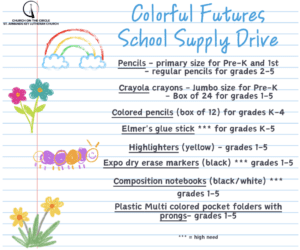 CHURCH ON THE CIRCLE
Colorful Futures
School Supply Drive
Pencils - primary size for Pre-K and 1st
- regular pencils for grades 2-5
Crayola crayons - Jumbo size for Pre-K
- Box of 24 for grades 1-5
Colored pencils (box of 12) for grades K-4
Elmer's glue stick *** for grades K-5
Highlighters (yellow) - grades 1-5
Expo dry erase markers (black) *** grades 1-5
Composition notebooks (black/white) ***
grades 1-5
Plastic Multi colored pocket folders with
prongs- grades 1-5
*** = high need